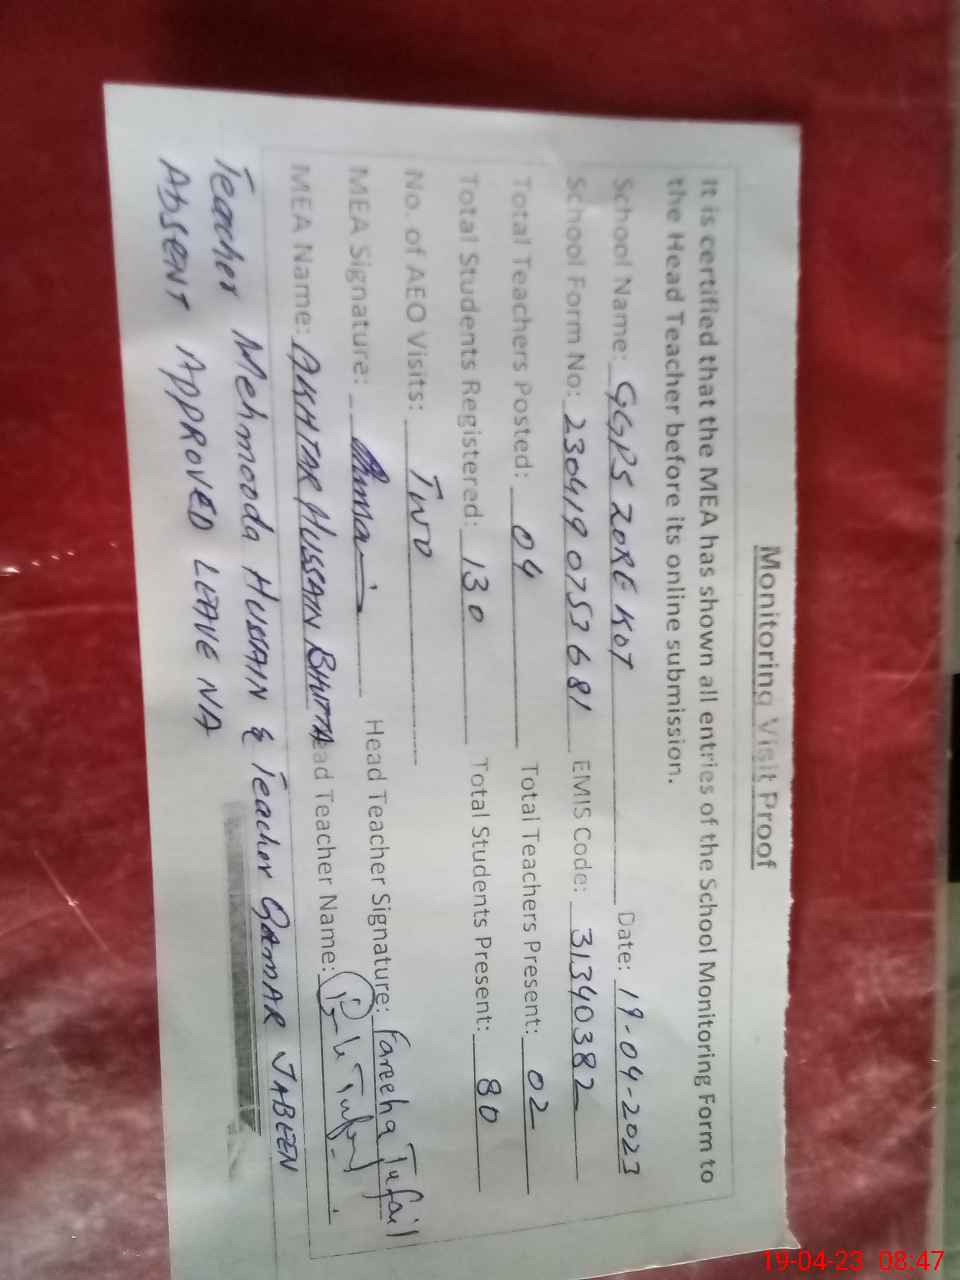 Monitoring Visit Proof
It is certified that the MEA has shown all entries of the School Monitoring Form to
the Head Teacher before its online submission.
School Name: GGPS ZORE KOT Date: 19-04-2023
School Form No: 230419 0753681 EMIS Code: 31340382
Total Teachers Posted: 04 Total Teachers Present: 02
Total Students Registered: 130 Total Students Present: 80
No. of AEO Visits: TWO
MEA Signature: Head Teacher Signature: Fareeha Tufail
MEA Name: AKHTAR HUSSAIN BHUTTA ead Teacher Name: Tufail
Teacher Mehmooda HUSSAIN & Teacher QAMAR JABEEN
ABSENT APPROVED LEAVE NA
19-04-23 08:47